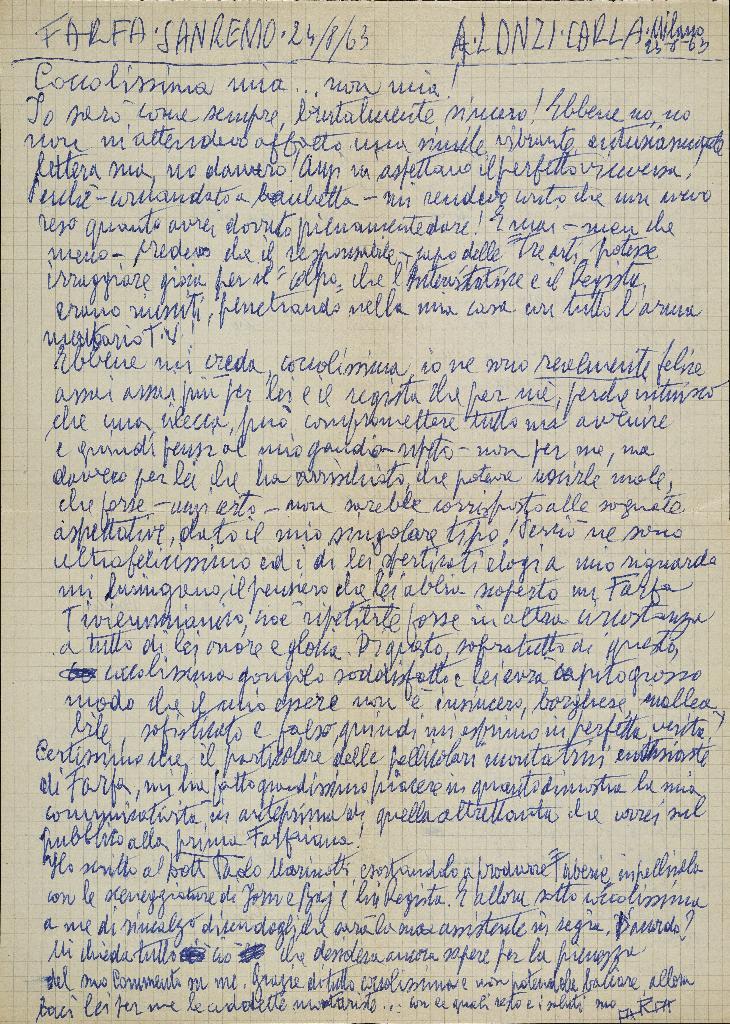 FARFA · SANREMO · 24/8/63 A · LONZI · CARLA · Milano
23-8-63
Coccolissima mia... non mia!
Io sarò come sempre, brutalmente sincero! Ebbene no, no
non m'attendevo affatto una simile vibrante entusiasmante
lettera ma, no davvero! Anzi m'aspettavo il perfetto viceversa!
Perché - - mi rendevo conto che non avevo
reso quanto avrei dovuto pienamente dare! E mai - men che
meno - credevo che il responsabile - capo delle Tre arti, potesse
irraggiare gioia per il "colpo" che l'Intervistatrice e il Regista,
erano riusciti, penetrando nella mia casa con tutto l'arma
T.V!
Ebbene mi creda, coccolissima, io ne sono realmente felice
assai assai più per lei e il regista che per me, perché intuisco
che una, può compromettere tutto un avvenire
e quindi pensi al mio gaudio - ripeto - non per me, ma
davvero per lei che ha arrischiato, che poteva uscirle male,
che forse - anzi certo - non sarebbe corrisposto alle sognate
aspettative, dato il mio singolare tipo! Perciò ne sono
ultrafelicissimo ed i di lei sperticati elogi a mio riguardo
mi lusingano, il pensiero che lei abbia scoperto un Farfa
cioè ripetibile forse in altra circostanza
a tutto di lei onore e gloria. Di questo, soprattutto di questo,
coccolissima gongolo soddisfatto e lei avrà capito grosso
modo che il mio essere non è insincero, borghese, mallea-
bile sofisticato e falso, quindi mi esprimo in perfetta verità!
Certissimo che, il particolare delle pellicolari montatrici entusiaste
di Farfa, mi ha fatto grandissimo piacere in quanto dimostra la mia
comunicatività in anteprima di quella altrettanta che vorrei sul
pubblico alla prima Farfiana!
Ho scritto al Dott Paolo Marinotti esortandolo a produrre
con le sceneggiature di Jorn e Baj e lei Regista. E allora sotto coccolissima
a me di rincalzo dicendogli che sarà la mia assistente in regia. D'accordo?
Mi chieda tutto ciò che desidera ancora sapere per la
del suo Commento su me. Grazie di tutto coccolissima e non potendo che baciare allora
baci lei per me le ... con le quali resto e i saluti suo FARFA